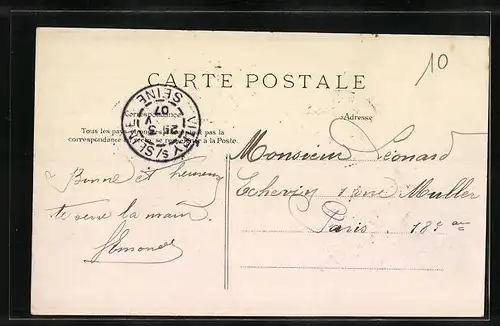 10
CARTE POSTALE
Correspondance
Adresse
VITRY S/ SEINE
SEINE
07
Tous les pays étrangers pas la
correspondance à la Poste.
Monsieur Léonard
1 rue Muller
Paris. 18e arr
Bonne et heureuse
te serre la main